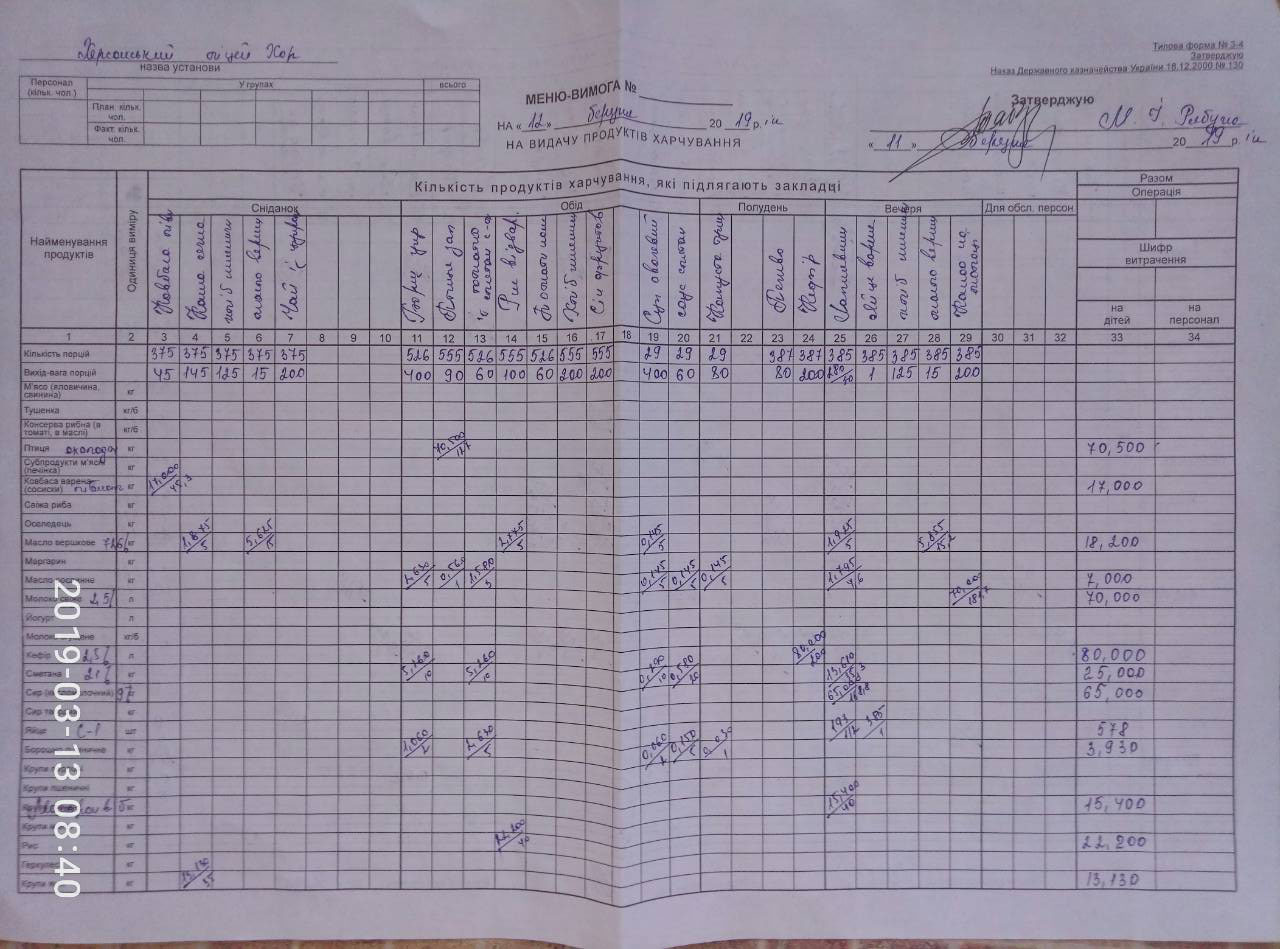 Херсонський ліцей Хор
назва установи
Типова форма № 3-4
Затверджую
Наказ Державного казначейства України 18.12.2000 № 130
Персонал (кільк. чол.)
У групах
всього
План. кільк. чол.
Факт. кільк. чол.
МЕНЮ-ВИМОГА №
НА « 12 » березня 20 19 р.
НА ВИДАЧУ ПРОДУКТІВ ХАРЧУВАННЯ
Затверджую
« 11 » березня 20 19 р.
Кількість продуктів харчування, які підлягають закладці
Разом
Операція
Найменування продуктів
Одиниця виміру
Сніданок
Обід
Полудень
Вечеря
Для обсл. персон.
Шифр витрачення
на дітей
на персонал
Ковбаса
Каша
масло верш
Чай з цукром
Борщ укр
Рис відвар.
Хліб пшенич
Сік фруктов
Суп овочевий
соус сметан
Капуста туш
Печиво
Кефір
яйце варене
масло верш
Какао на
1 2 3 4 5 6 7 8 9 10 11 12 13 14 15 16 17 18 19 20 21 22 23 24 25 26 27 28 29 30 31 32 33 34
Кількість порцій 375 375 375 375 375 526 555 526 555 526 555 555 29 29 29 387 387 385 385 385 385 385
Вихід-вага порцій 45 145 125 15 200 400 90 60 100 60 200 200 400 60 80 80 200 180/30 1 125 15 200
М'ясо (яловичина, свинина) кг
Тушенка кг/б
Консерва рибна (в томаті, в маслі) кг/б
Птиця кг 70,500/127 70,500
Субпродукти м'ясні (печінка) кг
Ковбаса варена (сосиски) кг 17,000/45,3 17,000
Свіжа риба кг
Оселедець кг
Масло вершкове 72,6% кг 1,875/5 5,625/15 2,775/5 0,145/5 1,925/5 5,855/15,2 18,200
Маргарин кг
Масло рослинне кг 2,630/5 0,560/1 1,580/3 0,145/5 0,145/5 0,145/5 1,795/4,6 7,000
Молоко свіже 2,5% л 70,000/181,7 70,000
Йогурт л
Молоко згущене кг/б
Кефір 2,5% л 80,000
Сметана 21% кг 5,260/10 5,260/10 0,290/10 0,580/20 13,610/35,3 25,000
Сир (кисломолочний) 9% кг 65,000/168,8 65,000
Сир
Яйце С-1 шт 193/1/2 385/1 578
Борошно пшеничне кг 1,060/2 2,630/5 0,060/2 0,150/5 0,030/1 3,930
Крупа
Крупа пшенична кг
кг 15,400/40 15,400
Крупа
Рис кг 22,200/40 22,200
Геркулес кг
Крупа кг 13,130/35 13,130
2019-03-13 08:40